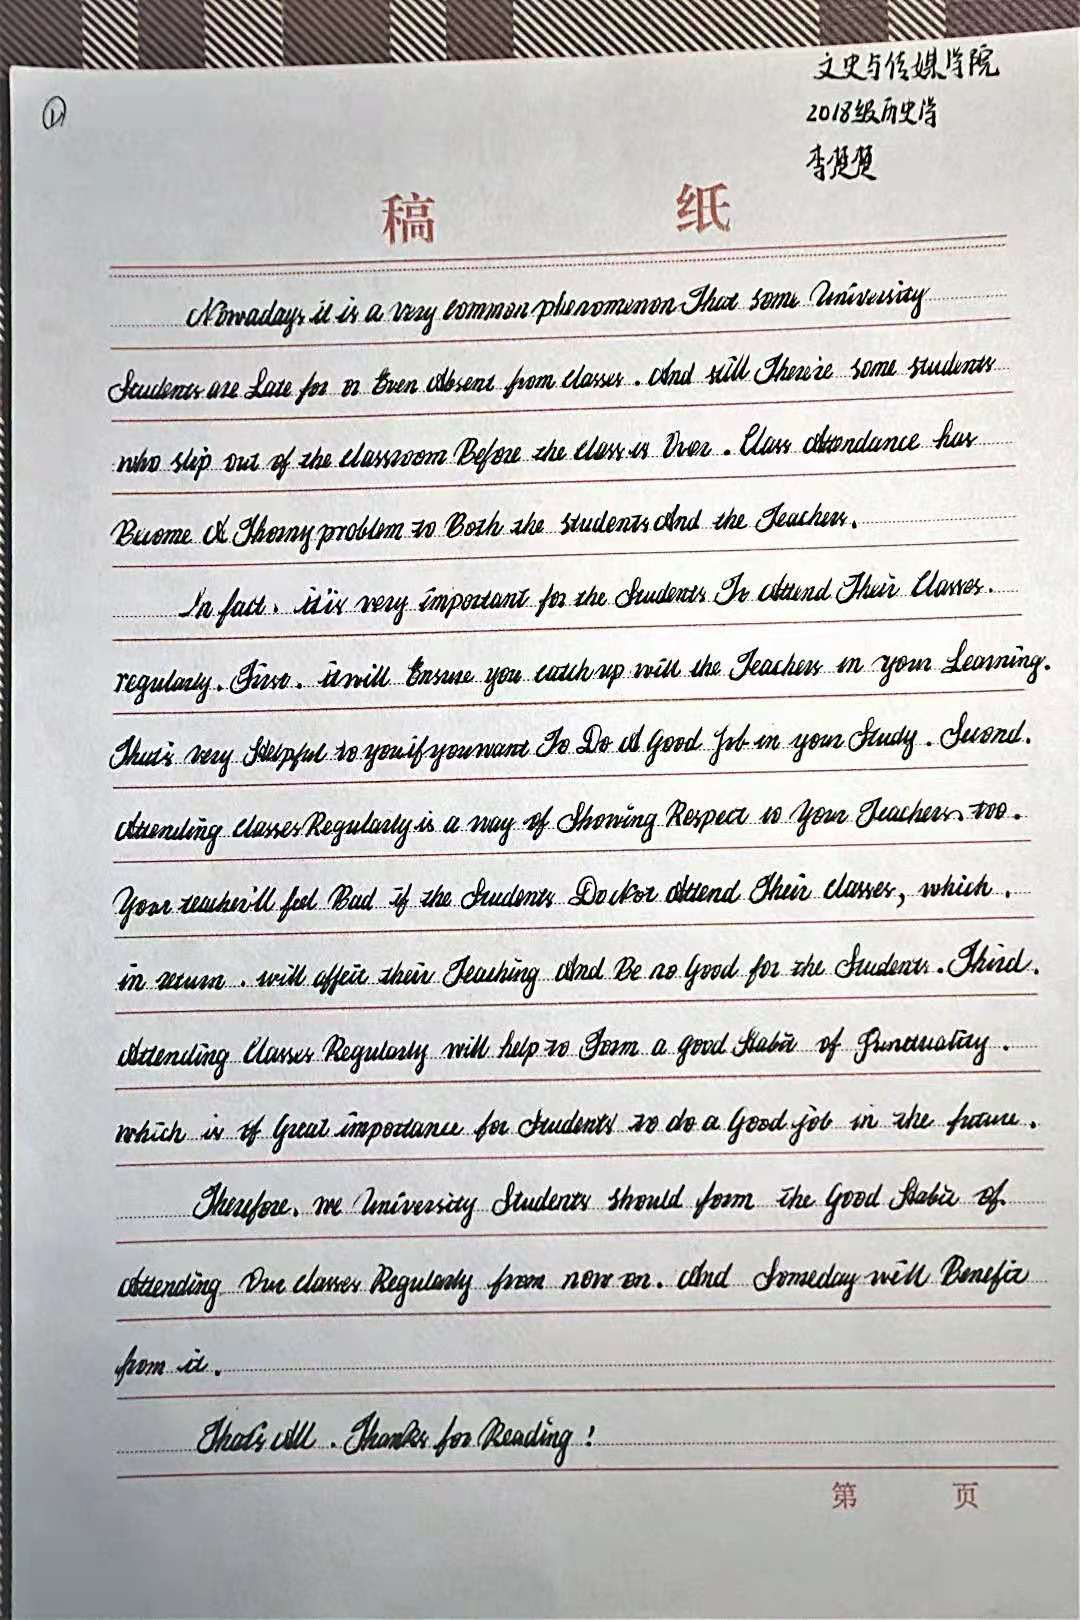 ①
文史与传媒学院
2018级历史学
李
稿 纸
Nowadays it is a very common phenomenon That some University
Students are Late for or Even Absent from classes. And still There're some students
who slip out of the classroom Before the class is Over. Class Attendance has
Become A Thorny problem to Both the students And the Teachers.
In fact. it is very important for the Students To Attend Their Classes.
regularly. First. it will Ensure you catch up with the Teachers in your Learning.
That's very Helpful to you if you want To Do A Good Job in your Study. Second.
Attending classes Regularly is a way of Showing Respect to Your Teachers. too.
Your teacher'll feel Bad if the Students Do Not Attend Their classes, which.
in return. will affect their Teaching And Be no Good for the Students. Third.
Attending Classes Regularly will help to Form a good Habit of Punctuality.
which is of Great importance for Students to do a Good job in the future.
Therefore. we University Students should form the Good Habit of.
Attending Our classes Regularly from now on. And Someday will Benefit
from it.
That's All. Thanks for Reading!
第 页